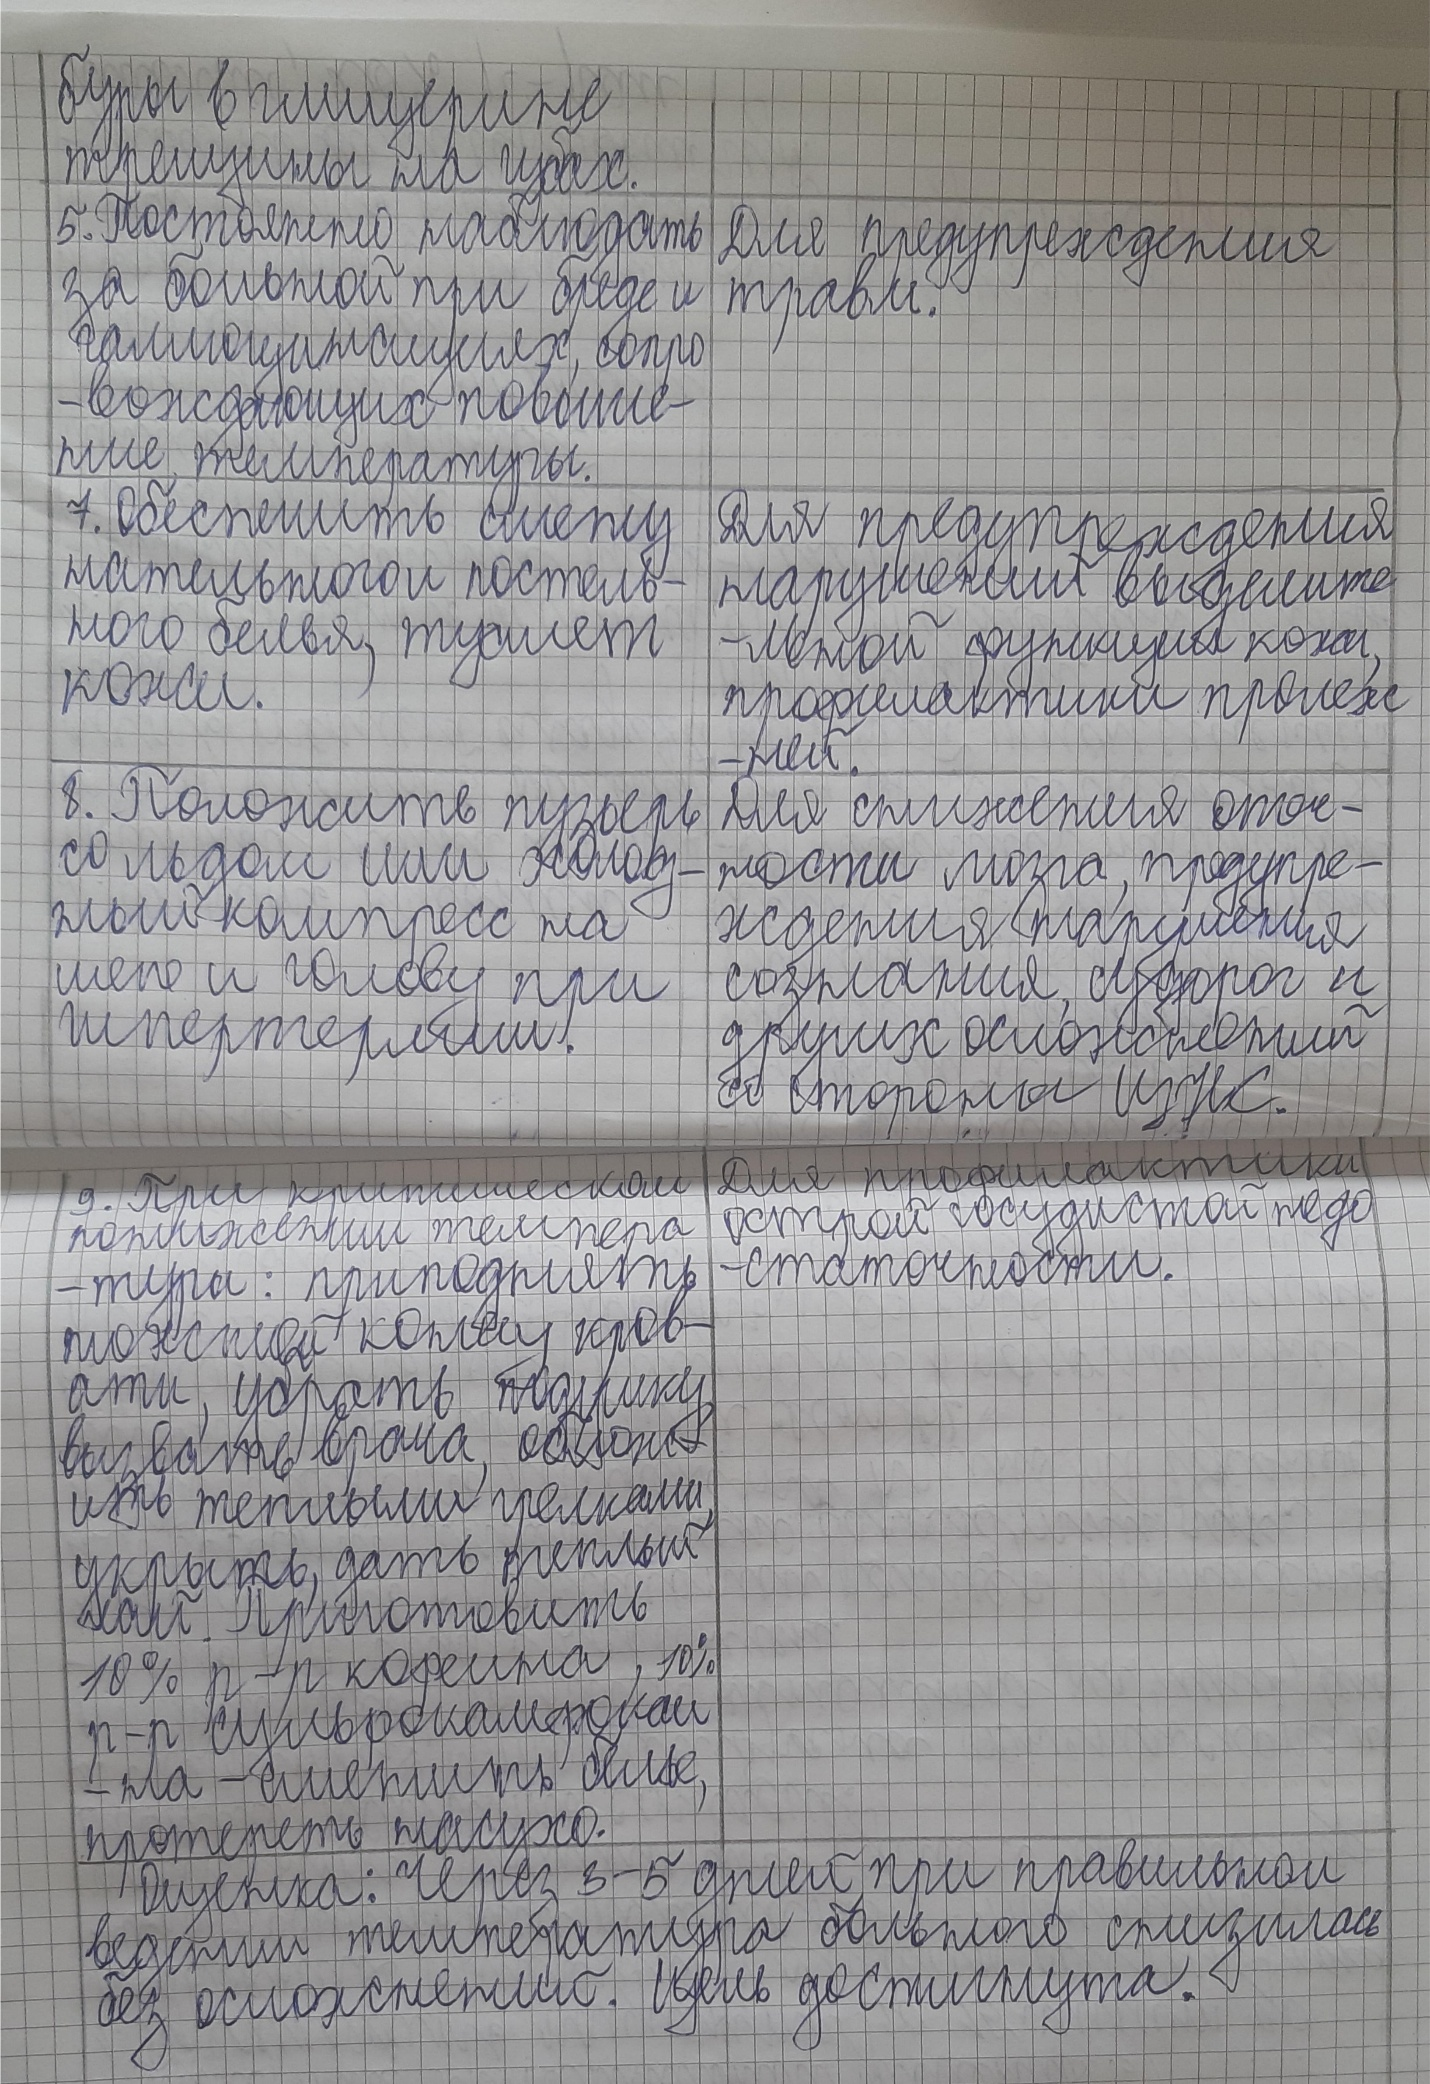 буры в глицерине
трещины на губах.
5. Постоянно наблюдать
за больной при бреде и
галлюцинациях, сопро
-вождающих повыше-
ние температуры.
Для предупреждения
травм.
7. Обеспечить смену
нательного и постель-
ного белья, туалет
кожи.
Для предупреждения
нарушений выделите
-льной функции кожи,
профилактики пролеж
-ней.
8. Положить пузырь
со льдом или холод-
ный компресс на
шею и голову при
гипертермии.
Для снижения отеч-
ности мозга, предупре-
ждения нарушения
сознания, судорог и
других осложнений
со стороны ЦНС.
9. При критическом
понижении темпера
-туры: приподнять
ножной конец кров-
ати, убрать подушку,
вызвать врача, облож
ить теплыми грелками,
укрыть, дать теплый
чай. Приготовить
10% р-р кофеина, 10%
р-р сульфокамфокаи
-на - сменить белье,
протереть насухо.
Для профилактики
острой сосудистой недо
-статочности.
Оценка: Через 3-5 дней при правильном
ведении температура больного снизилась
без осложнений. Цель достигнута.